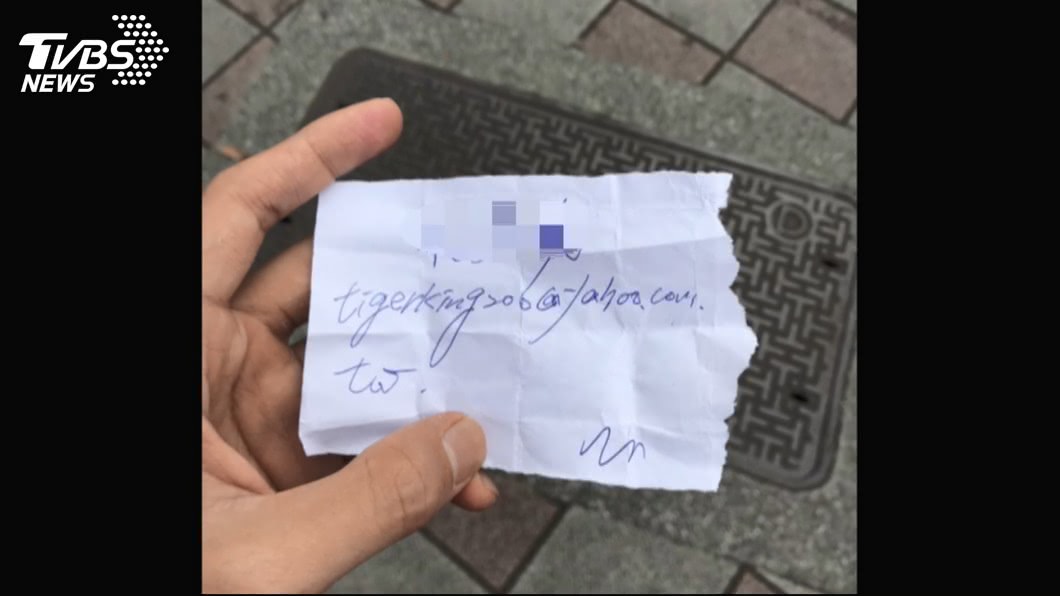 TVBS
NEWS
tigerking206@yahoo.com.
tw.